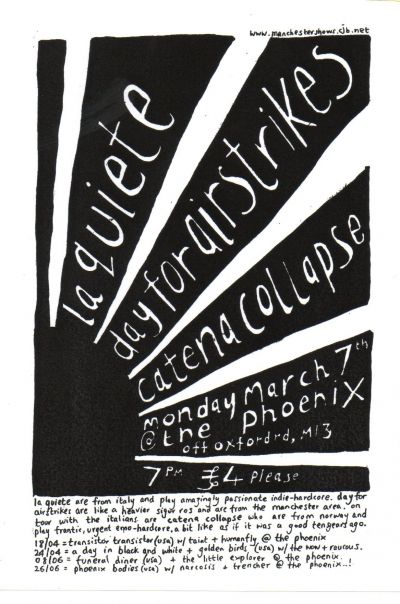 www.manchestershows.cjb.net
la quiete
day for airstrikes
catena collapse
monday March 7th
@ the Phoenix
off oxford rd, M13
7PM £4 please
la quiete are from italy and play amazingly passionate indie-hardcore. day for
airstrikes are like a heavier sigur ros and are from the manchester area. on
tour with the italians are catena collapse who are from norway and
play frantic, urgent emo-hardcore, a bit like as if it was a good ten years ago.
18/04 = transistor transistor (usa) w/ taint + humanfly @ the phoenix
24/04 = a day in black and white + golden birds (usa) w/ the now + raucous.
08/06 = funeral diner (usa) + the little explorer @ the phoenix.
26/06 = phoenix bodies (usa) w/ narcosis + trencher @ the phoenix...!